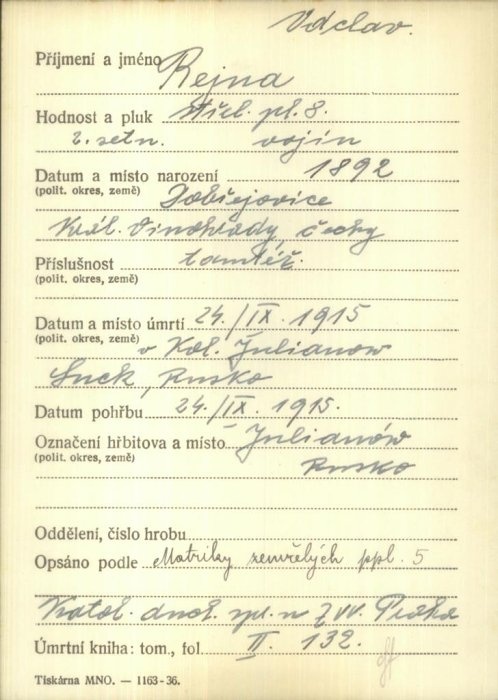 Václav.
Příjmení a jméno Rejna
Hodnost a pluk střel. pl. 8.
2. setn. vojín
Datum a místo narození 1892
(polit. okres, země) Dobřejovice
Král. Vinohrady, Čechy
Příslušnost tamtéž.
(polit. okres, země)
Datum a místo úmrtí 24./IX. 1915
(polit. okres, země) v Kol. Julianow
Luck, Rusko
Datum pohřbu 24./IX. 1915.
Označení hřbitova a místo Julianów
(polit. okres, země) Rusko
Oddělení, číslo hrobu
Opsáno podle Matriky zemřelých ppl. 5
Katol. duch. spr. n ZVV. Praha
Úmrtní kniha: tom., fol. II. 132.
Tiskárna MNO. — 1163-36.